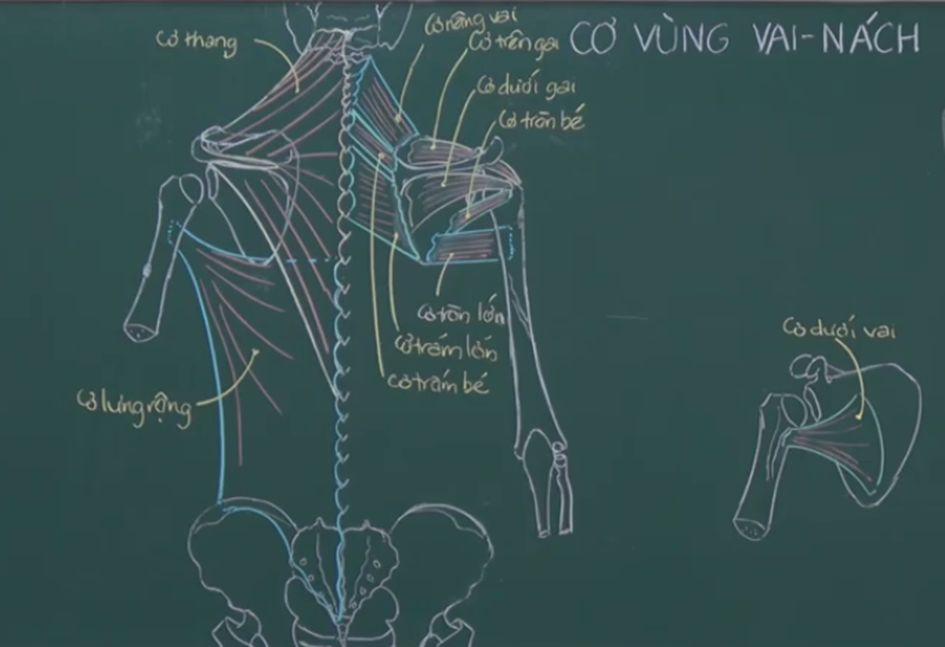 CƠ VÙNG VAI-NÁCH
Cơ thang
Cơ nâng vai
Cơ trên gai
Cơ dưới gai
Cơ tròn bé
Cơ tròn lớn
Cơ trám lớn
Cơ trám bé
Cơ lưng rộng
Cơ dưới vai